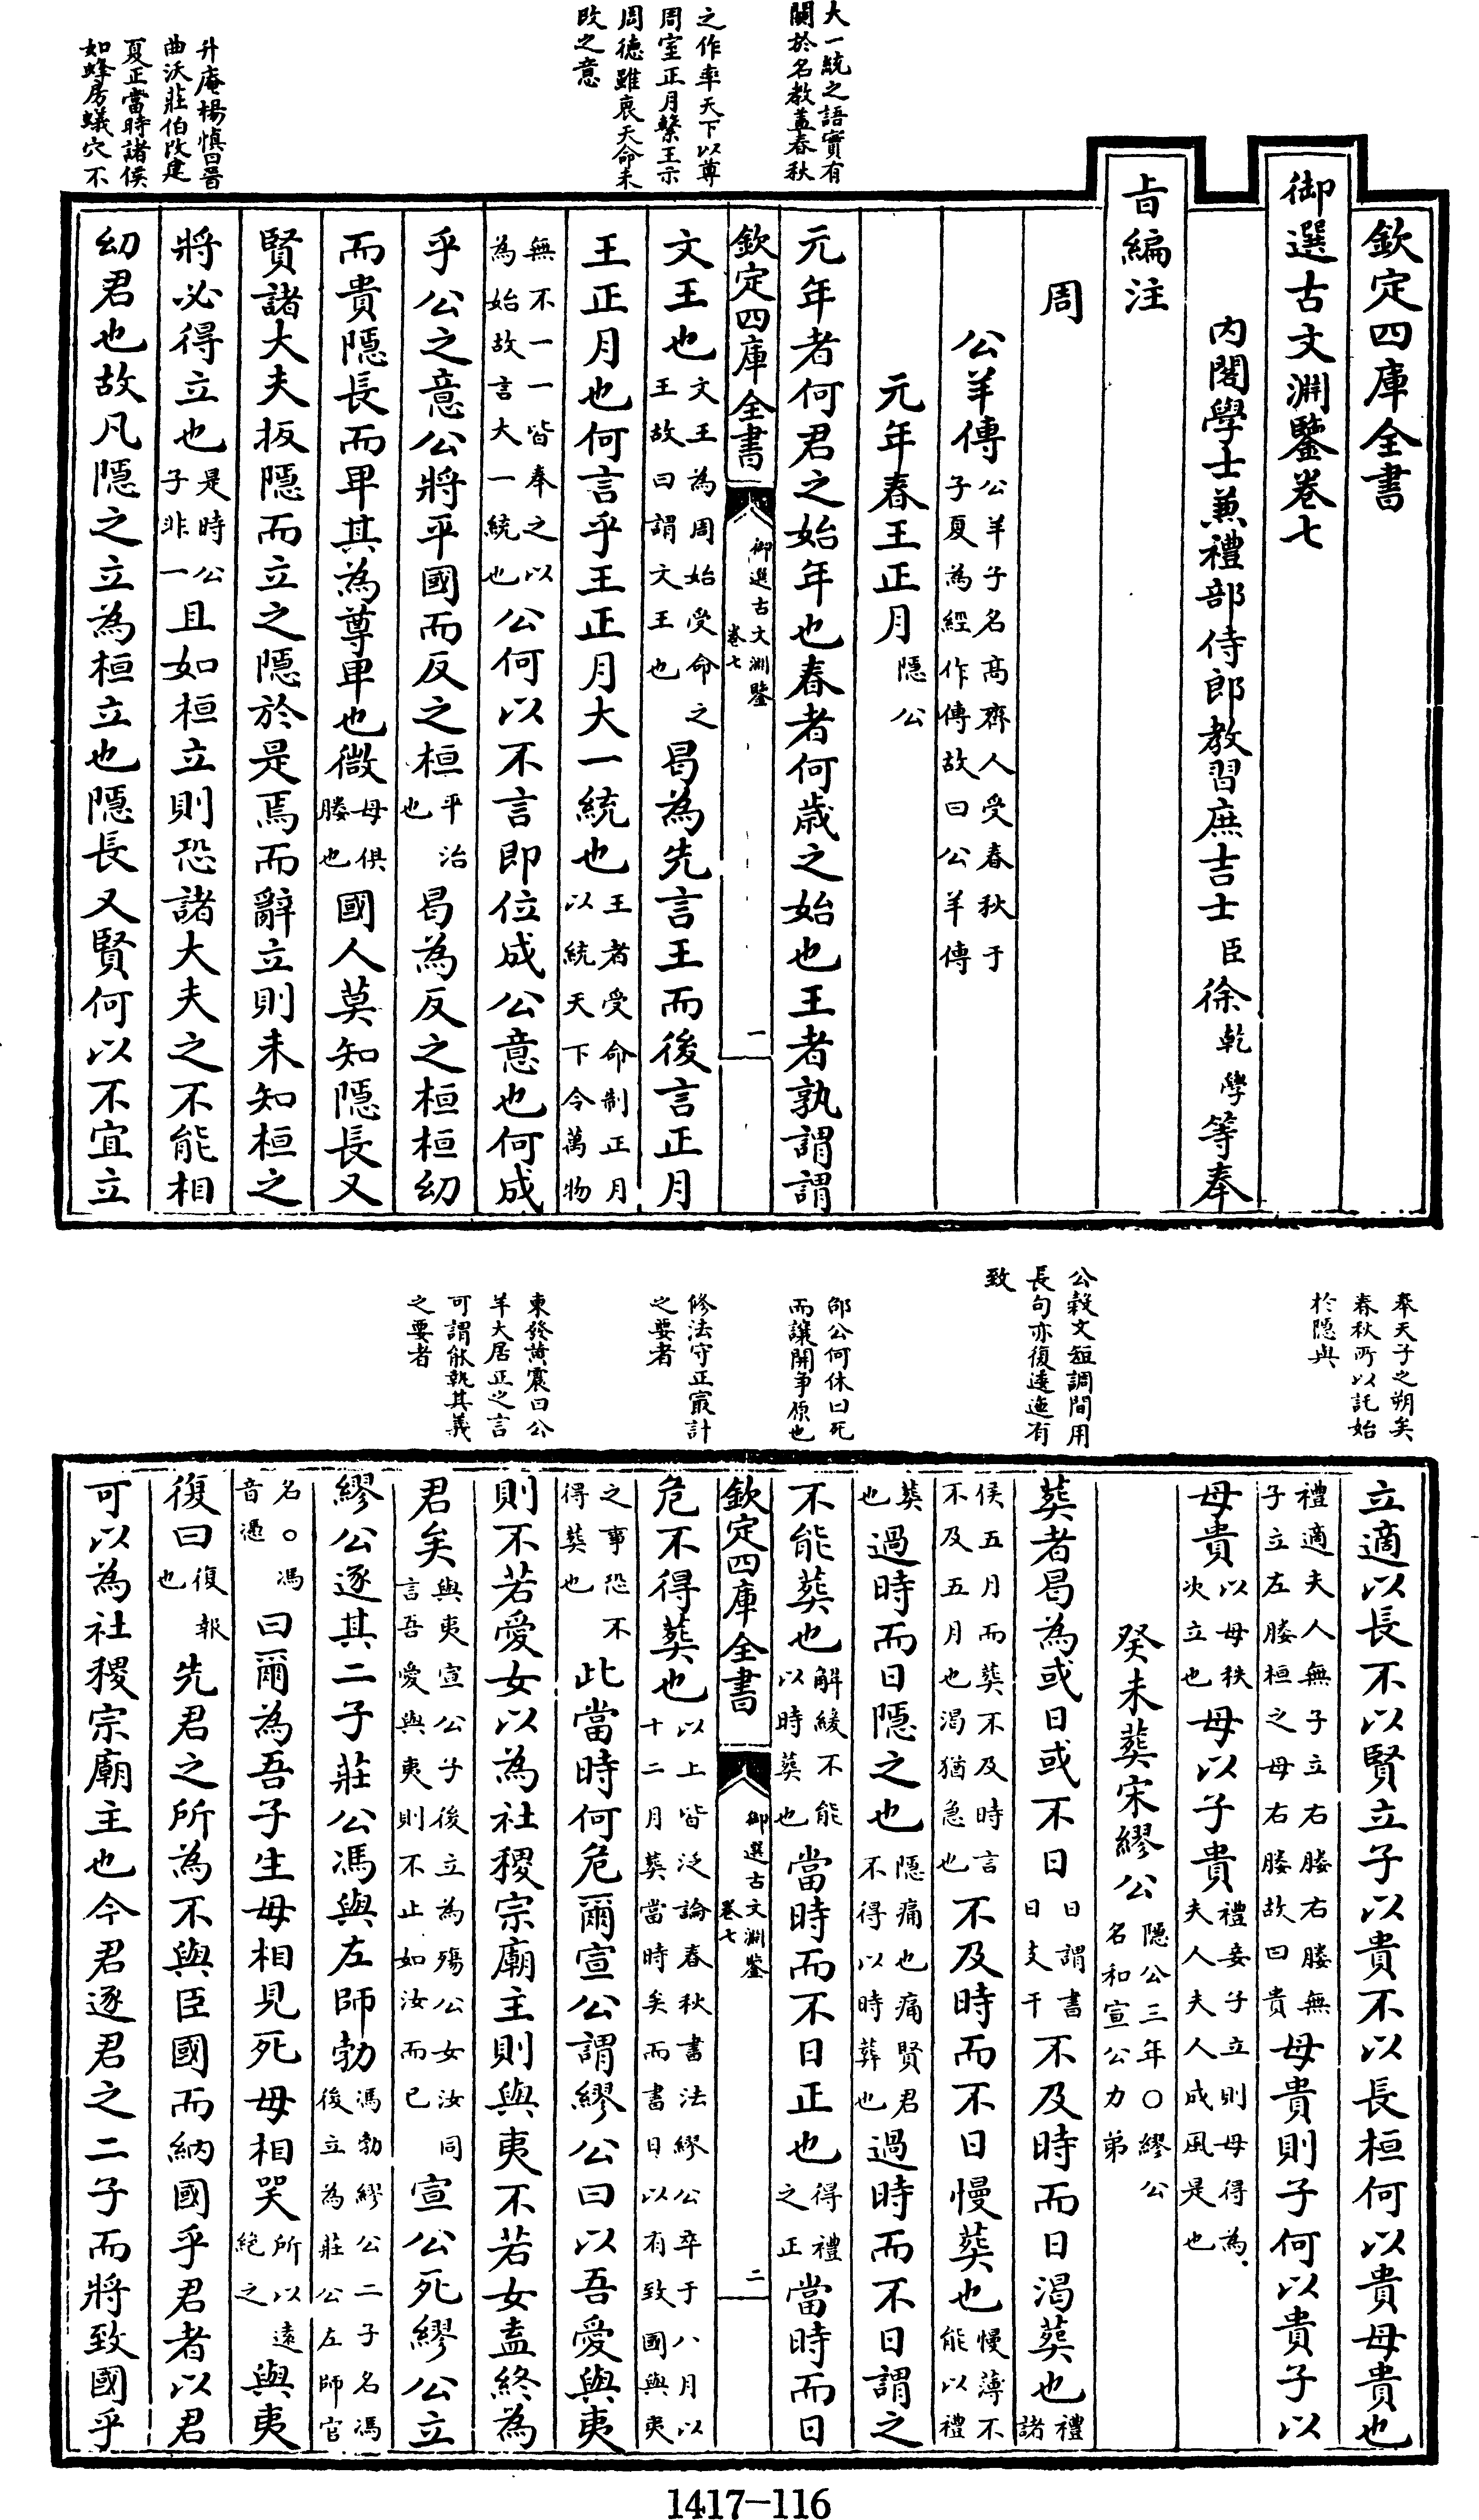 大一統之語實有
關於名教蓋春秋
之作率天下以尊
周室正月繫王示
周德雖衰天命未
改之意
升庵楊愼曰晉
曲沃莊伯改建
夏正當時諸侯
如蜂房蟻穴不
欽定四庫全書
御選古文淵鑒卷七
內閣學士兼禮部侍郎教習庶吉士臣徐乾學等奉
旨編注
周
公羊傳公羊子名高齊人受春秋于子夏為經作傳故曰公羊傳
元年春王正月隱公
元年者何君之始年也春者何歲之始也王者孰謂謂
欽定四庫全書 御選古文淵鑒 卷七 一
文王也文王為周始受命之王故曰謂文王也曷為先言王而後言正月
王正月也何言乎王正月大一統也王者受命制正月以統天下令萬物
無不一一皆奉之以為始故言大一統也公何以不言即位成公意也何成
乎公之意公將平國而反之桓平治也曷為反之桓桓幼
而貴隱長而卑其為尊卑也微母俱媵也國人莫知隱長又
賢諸大夫扳隱而立之隱於是焉而辭立則未知桓之
將必得立也是時公子非一且如桓立則恐諸大夫之不能相
幼君也故凡隱之立為桓立也隱長又賢何以不宜立
奉天子之朔矣
春秋所以託始
於隱與
公穀文短調間用
長句亦復逶迤有
致
邵公何休曰死
而讓開爭原也
修法守正寔計
之要者
東發黃震曰公
羊大居正之言
可謂能執其義
之要者
立適以長不以賢立子以貴不以長桓何以貴母貴也
禮適夫人無子立右媵右媵無子立左媵桓之母右媵故曰貴母貴則子何以貴子以
母貴以母秩次立也母以子貴禮妾子立則母得為夫人夫人成風是也
癸未葬宋繆公隱公三年○繆公名和宣公力弟
葬者曷為或日或不日日謂書日支干不及時而日渴葬也禮諸
侯五月而葬不及時言不及五月也渴猶急也不及時而不日慢葬也慢薄不能以禮
葬也過時而日隱之也隱痛也痛賢君不得以時葬也過時而不日謂之
不能葬也解緩不能以時葬也當時而不日正也得禮之正當時而日
欽定四庫全書 御選古文淵鑒 卷七 二
危不得葬也以上皆泛論春秋書法繆公卒于八月以十二月葬當時矣而書日以有致國與夷
之事恐不得葬也此當時何危爾宣公謂繆公曰以吾愛與夷
則不若愛女以為社稷宗廟主則與夷不若女盍終為
君矣與夷宣公子後立為殤公女汝同言吾愛與夷則不止如汝而已宣公死繆公立
繆公逐其二子莊公馮與左師勃馮勃繆公二子名馮後立為莊公左師官
名○馮音憑曰爾為吾子生毋相見死毋相哭所以遠絕之與夷
復曰復報也先君之所為不與臣國而納國乎君者以君
可以為社稷宗廟主也今君逐君之二子而將致國乎
1417—116